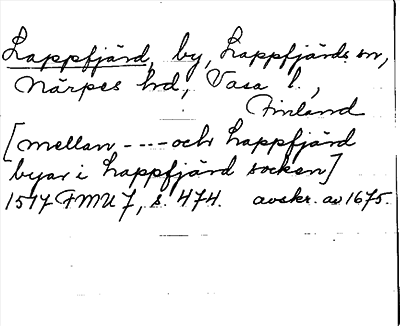 Lappfjärd, by, Lappfjärds sn,
Närpes hd, Vasa l.,
Finland
[mellan ---- och Lappfjärd
byar i Lappfjärd socken]
1517 FMU 7, s. 474. avskr. av 1675.